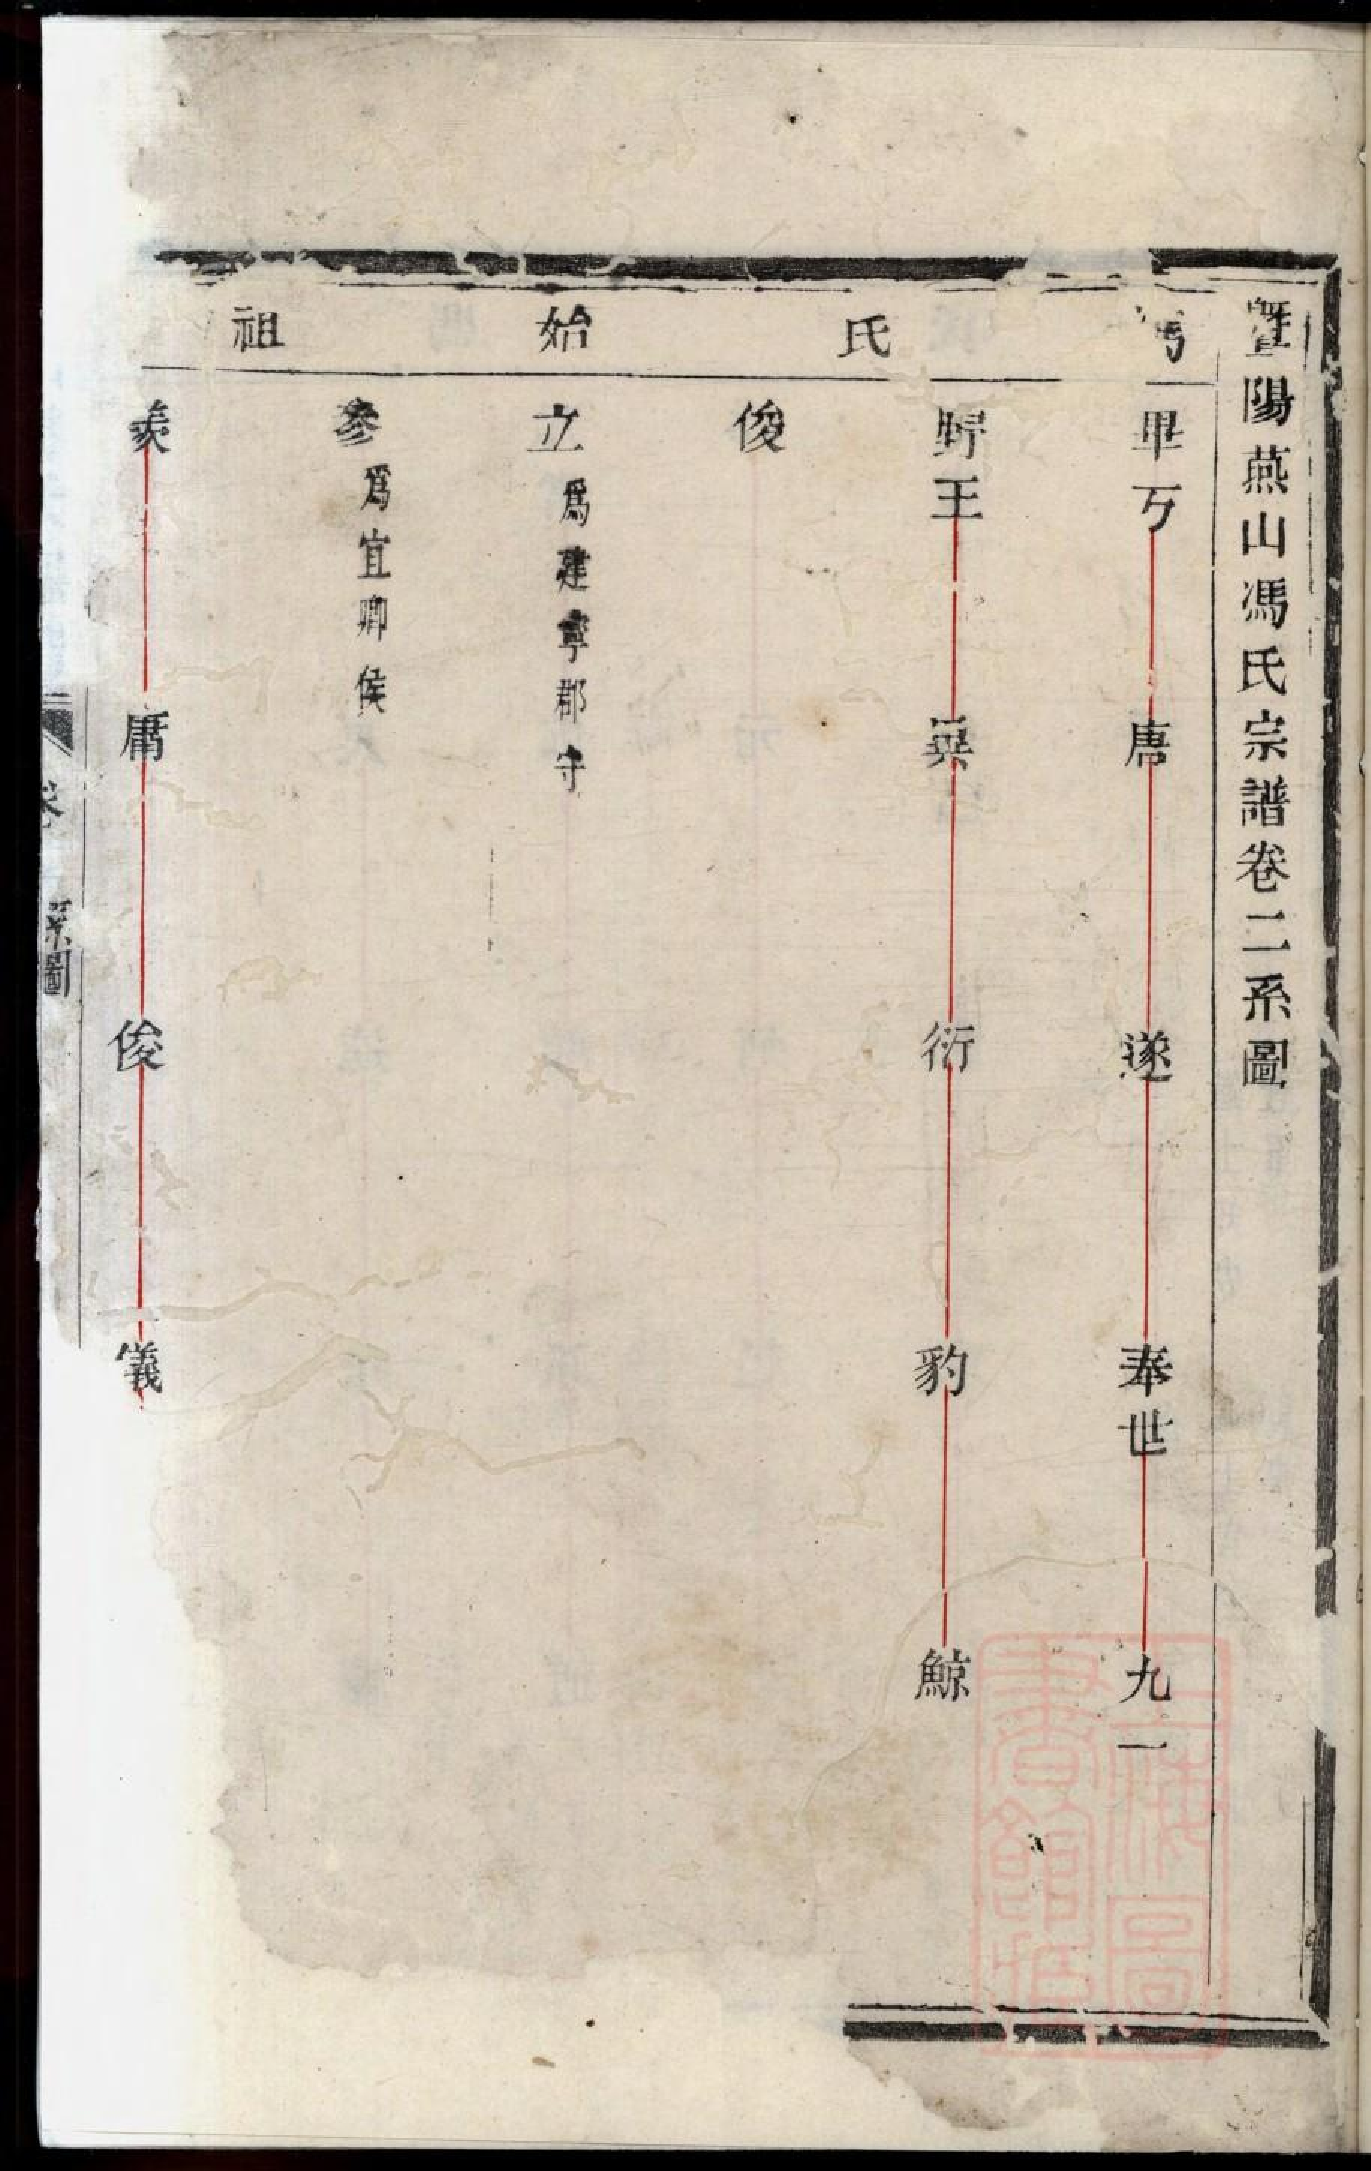 暨陽燕山馮氏宗譜卷二系圖
馮氏始祖
畢万 唐 遂 奉世 九一
野王 衍 豹 鯨
俊
立 為建寧郡守
參 為宜鄉侯
俊 儀
系圖